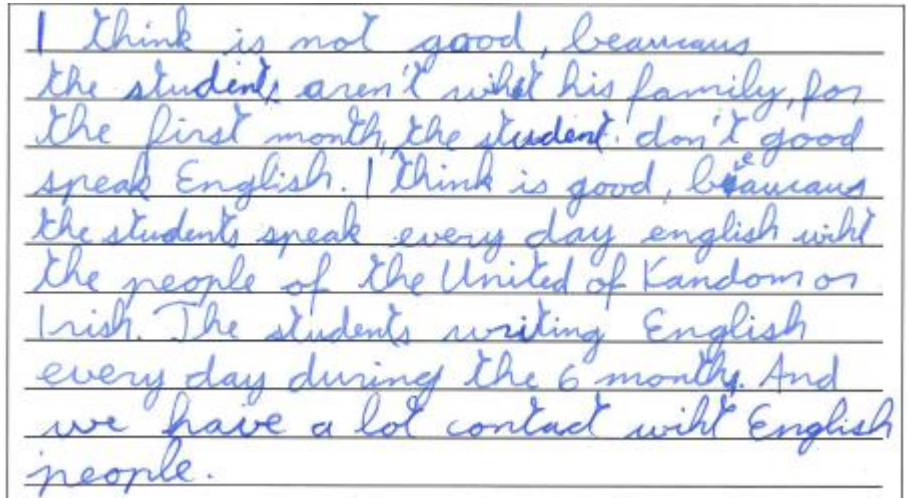 I think is not good, beaucaus
the students aren't whit his family, for
the first month, the student. don't good
speak English. I think is good, beaucaus
the students speak every day english wiht
the people of the United of Kandom or
Irish. The students writing English
every day during the 6 months. And
we have a lot contact wiht English
people.